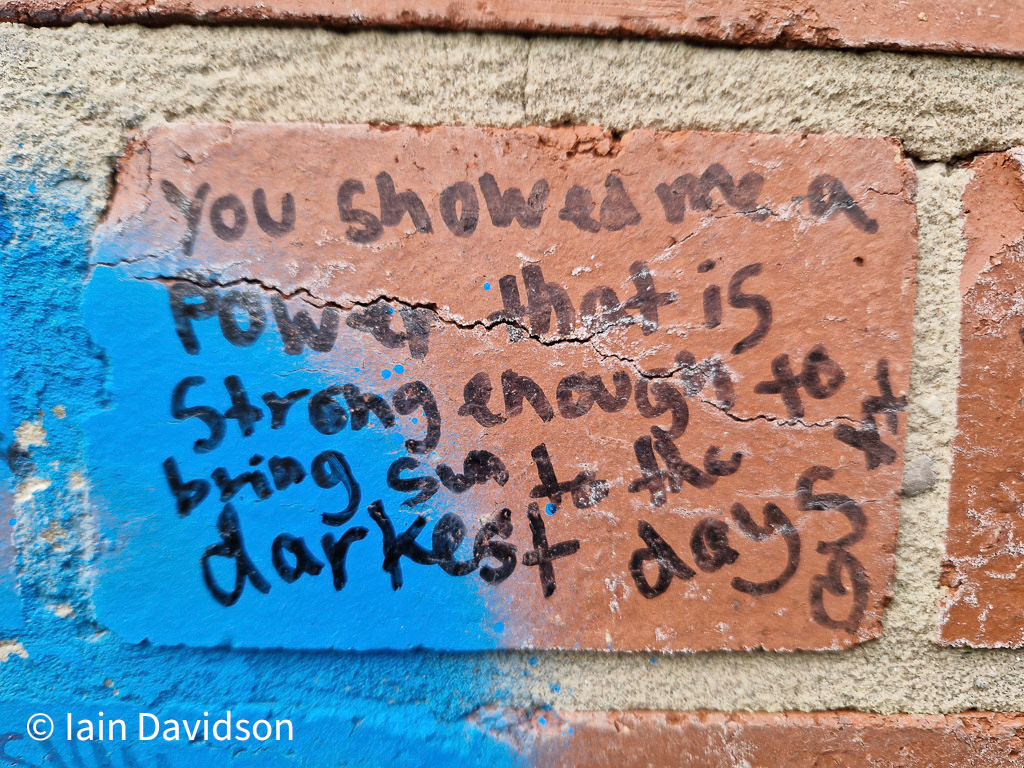 You showed me a
Power that is
strong enough to
bring sun to the
darkest days
© Iain Davidson